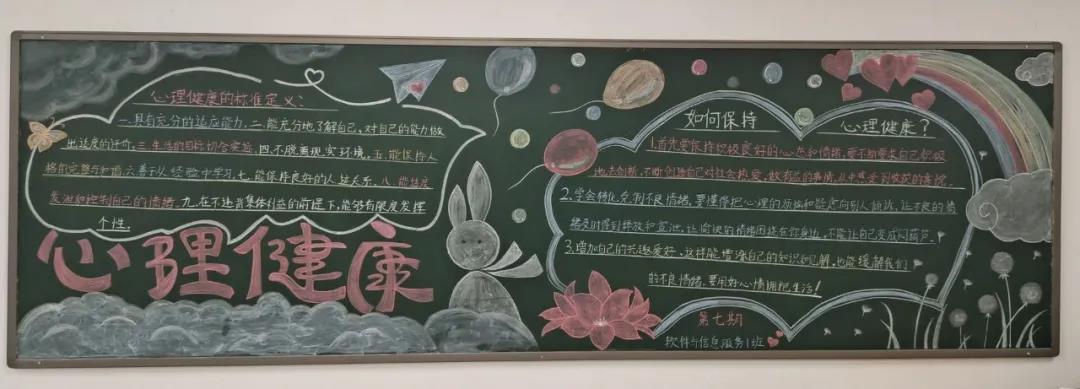 心理健康的标准定义:
一.具有充分的适应能力.二.能充分地了解自己,对自己的能力做
出适度的评价.三.生活的目标切合实际.四.不脱离现实环境.五.能保持人
格的完整与和谐.六.善于从经验中学习.七.能保持良好的人际关系.八.能适度
发泄和控制自己的情绪.九.在不违背集体利益的前提下,能够有限度发挥
个性.
心理健康
如何保持 心理健康?
1.首先要保持积极良好的心态和情绪,要不断要求自己积极
地去创新,不断创造自己对社会热爱,做有益的事情,从中感受到收获的喜悦.
2.学会转化克制不良情绪.要懂得把心理的烦恼和疑虑向别人倾诉,让不良的情
绪及时得到释放和宣泄,让愉快的情绪围绕在你身边,不能让自己变成闷葫芦.
3.增加自己的兴趣爱好,这样能增涨自己的知识和见解,也能缓解我们
的不良情绪.要用好心情拥抱生活!
第七期
软件与信息服务1班